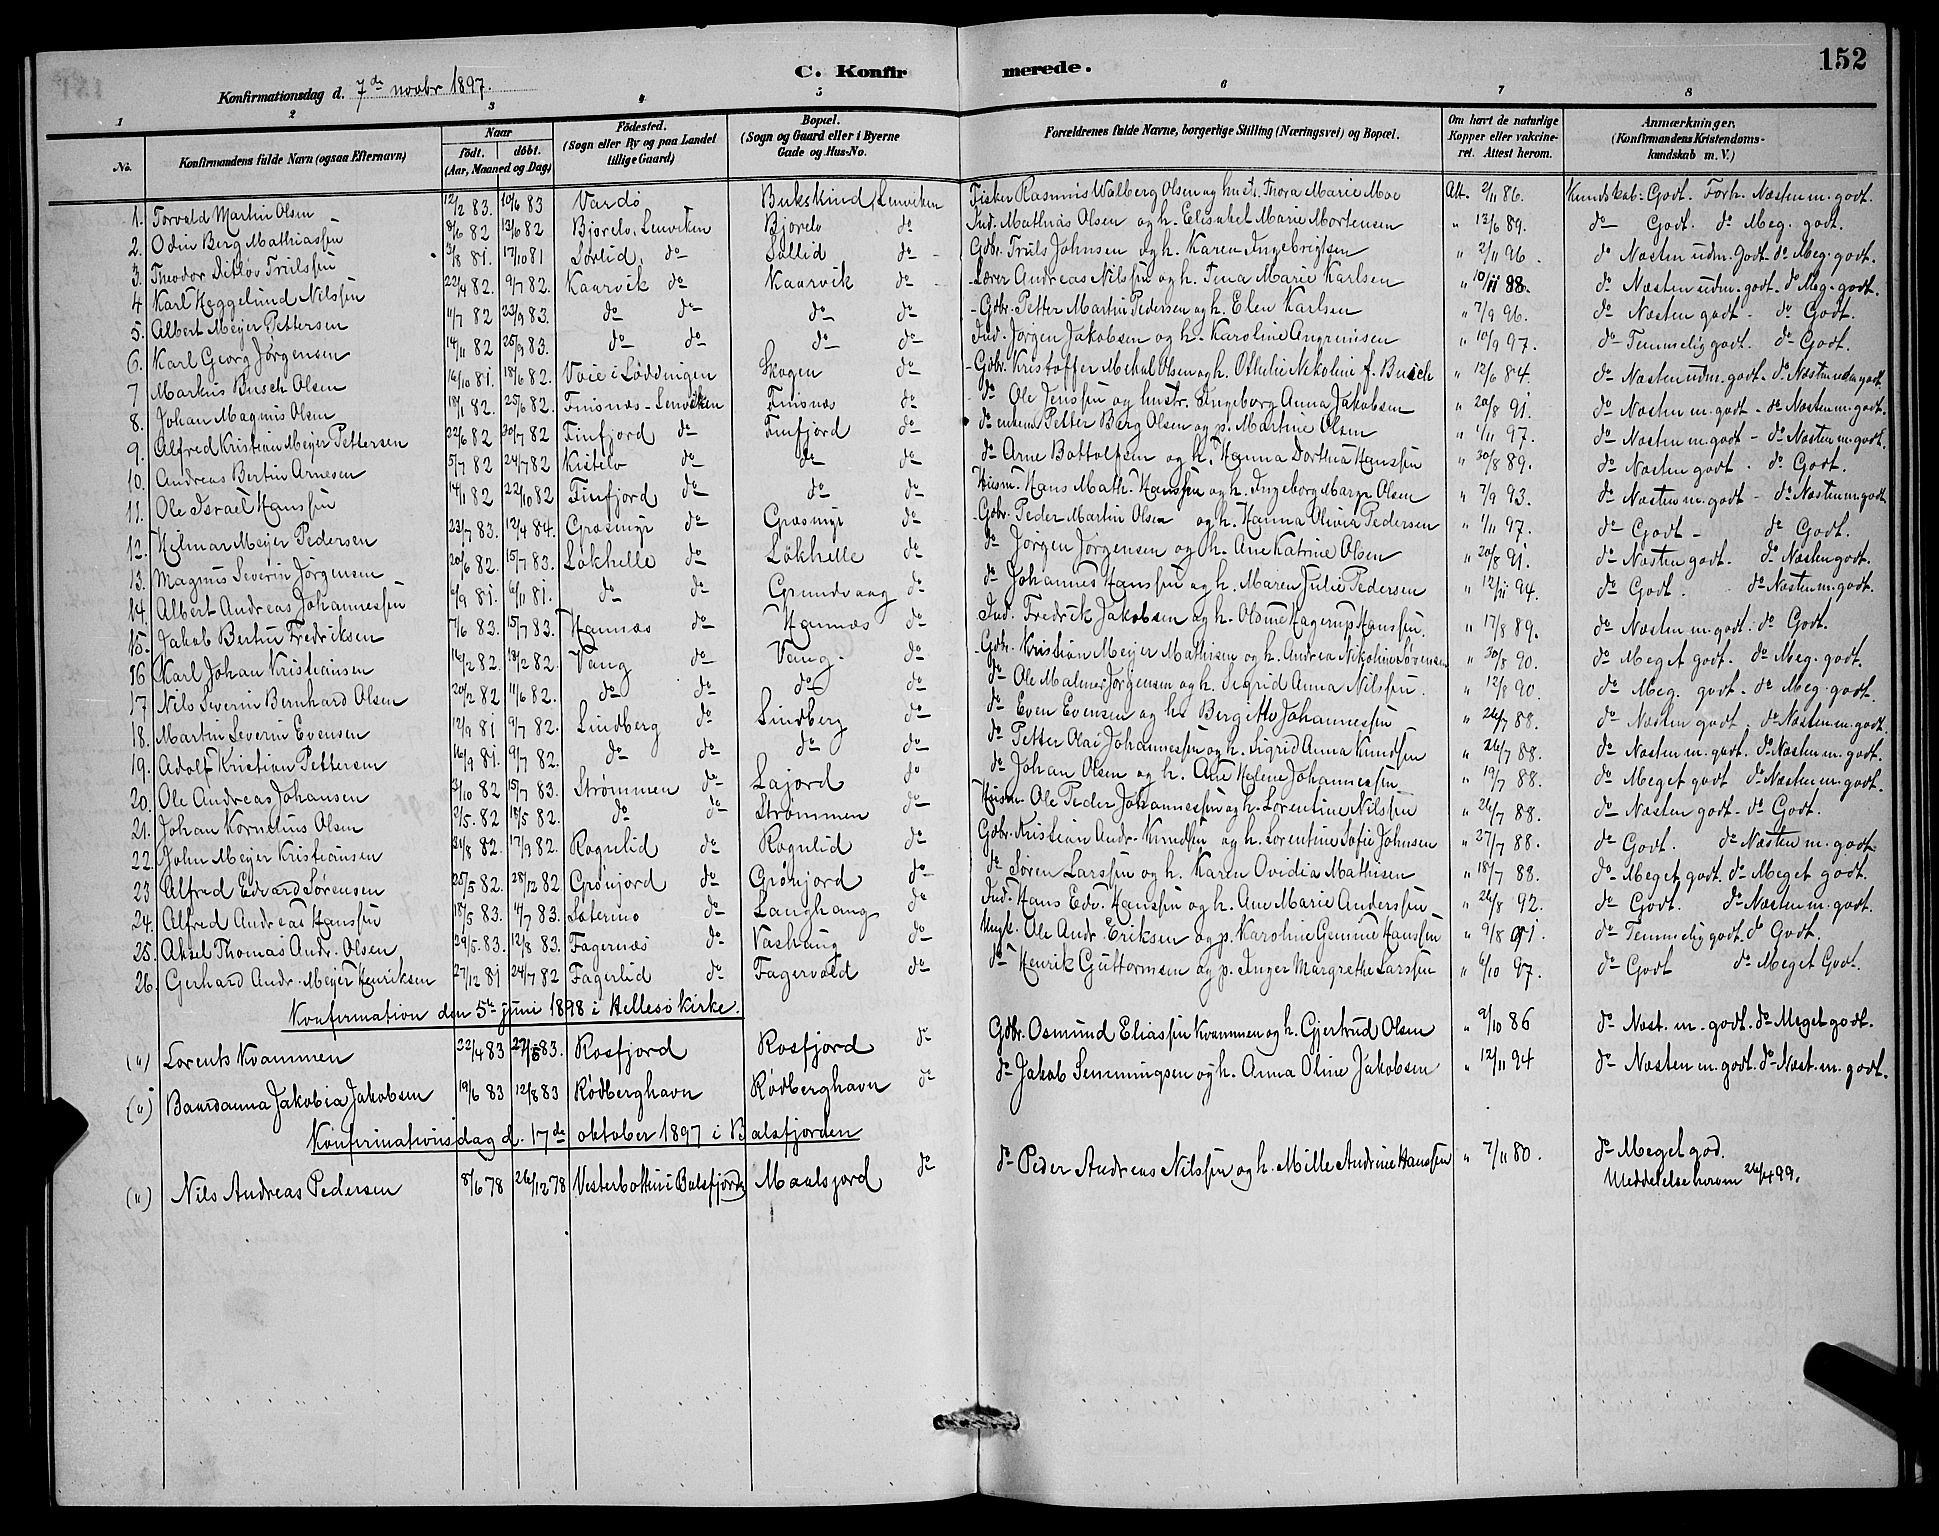 152
C. Konfirmerede.
Konfirmationsdag d. 7de novbr 1897.
1 2 3 4 5 6 7 8
No. Konfirmandens fulde Navn (ogsaa Efternavn) Naar født. døbt. (Aar, Maaned og Dag) Fødested. (Sogn eller By og paa Landet tillige Gaard) Bopæl. (Sogn og Gaard eller i Byerne Gade og Hus-No. Forældrenes fulde Navne, borgerlige Stilling (Næringsvei) og Bopæl. Om havt de naturlige Kopper eller vakcineret. Attest herom. Anmærkninger. (Konfirmandens Kristendomskundskab m. V.)
1. Torvald Martin Olsen 12/2 83. 10/6 83 Vardø Bukskind, Lenviken Fisker Rasmus Walberg Olsen og hustr. Thora Marie Moe Att. 2/11 86. Kundskab: Godt. Forh. Næsten m. godt.
2. Odin Berg Mathiassen 8/6 82 13/6 82 Bjørelv, Lenviken Bjørelv do Ind. Mathias Olsen og h. Elisabet Marie Mortensen " 13/6 89. do Godt. do Meg. godt.
3. Theodor Ditløv Trulssen 3/8 81. 17/10 81 Sørlid, do Sollid do Gdbr. Truls Johnsen og h. Karen Ingebrigtsen " 2/11 96. do Næsten udm. godt. do Meg. godt.
4 Karl Heggelund Nilssen 22/4 82. 9/7 82. Kaarvik do Kaarvik do Lærer Andreas Nilssen og h. Tina Marie Karlsen " 10/11 88. do Næsten udm. godt. do Meg. godt.
5. Albert Meyer Pettersen 11/7 82 23/9 83. do do do do Gdbr. Petter Martin Pedersen og h. Elen Karlsen " 7/9 96. do Næsten godt - do Godt.
6. Karl Georg Jørgensen 14/11 82 25/9 83. do do do do Ind. Jørgen Jakobsen og h. Karoline Angremsen " 10/9 97. do Temmelig godt. do Godt.
7 Markus Busch Olsen 16/10 81. 18/6 82. Voie i Løddingen Skogen do Gdbr. Kristoffer Mekal Olsen og h. Othelie Nikoline f. Busch " 12/6 84. do Næsten udm. godt. do Næsten udm. godt.
8. Johan Magnus Olsen 18/1 82. 25/6 82. Finsnæs - Lenviken Finsnæs do do Ole Jenssen og hustr. Ingeborg Anna Jakobsen " 20/8 91. do Næsten m. godt - do Næsten m. godt.
9. Alfred Kristian Meyer Pettersen 22/6 82 30/7 82 Finfjord do Finfjord do do enkem. Petter Berg Olsen og p. Martine Olsen " 1/11 97. do Næsten m. godt - do Næsten m. godt.
10. Andreas Bertin Arnesen 5/7 82 24/7 82 Kistelv do do do do Arne Bottolfsen og h. Hanna Dorthea Hanssen " 30/8 89. do Næsten godt. do Godt.
11. Ole Israel Hanssen 14/11 82 22/10 82 Finfjord do do do Husm. Hans Math. Hanssen og h. Ingeborg Margr. Olsen " 7/9 93. do Næsten m. godt - do Næsten m. godt
12. Hilmar Meyer Pedersen 23/7 83. 12/4 84. Græsmyr do Græsmyr do Gdbr. Peder Martin Olsen og h. Hanna Olivia Pedersen " 1/11 97. do Godt - do Godt.
13. Magnus Severin Jørgensen 20/6 82. 15/7 83. Løkhelle do Løkhelle do do Jørgen Jørgensen og h. Ane Katrine Olsen " 20/8 91. do Næsten godt. do Næsten godt.
14. Albert Andreas Johannessen 6/9 81. 6/11 81. do do Grundvaag do do Johannes Hanssen og h. Maren Julie Pedersen " 12/11 94. do Godt. do Næsten m. godt.
15. Jakob Bertin Fredriksen 7/6 83. 15/7 83. Hannæs do Hannæs do Ind. Fredrik Jakobsen og h. Oline Hagerup Hanssen. " 17/8 89. do Næsten m. godt. do Godt.
16 Karl Johan Kristiansen 16/2 82. 18/2 82. Vang do Vang. do Gdbr. Kristian Meyer Mathisen og h. Andrea Nikoline Sørensen " 30/8 90. do Meget godt. do Meg. godt.
17 Nils Severin Bernhard Olsen 20/2 82 11/6 82. do do do do do Ole Malmer Jørgensen og h. Sigrid Anna Nilssen. " 12/8 90. do Meg. godt. do Meg. godt.
18. Martin Severin Evensen 12/9 81 9/7 82. Lindberg do Lindberg do do Even Evensen og h. Bergitte Johannessen " 26/7 88. do Næsten godt. do Næsten m. godt.
19. Adolf Kristian Pettersen 16/9 81. 9/7 82. do do do do do Petter Olai Johannessen og h. Sigrid Anna Knudsen " 26/7 88. do Næsten m. godt. do Næsten m. godt.
20. Ole Andreas Johansen 31/10 82 15/7 83. Strømmen do Lajord do do Johan Olsen og h. Ane Helene Johannessen " 19/7 88. do Meget godt do Næsten m. godt.
21. Johan Kornelius Olsen 2/5. 82 18/5 82. do do Strømmen do Husm. Ole Peder Johannessen og h. Lorentine Nilssen " 26/7 88. do Næsten godt. do Godt.
22. John Meyer Kristiansen 21/8 82. 17/9 82. Rognlid do Rognlid do Gdbr. Kristian Andr. Knudsen og h. Lorentine Sofie Johnsen " 27/7 88. do Godt. do Næsten m. godt.
23 Alfred Edvard Sørensen 25/5 82. 28/12 82 Grønjord do Grønjord do do Søren Larssen og h. Karen Ovidia Mathisen " 18/7 88. do Meget godt. do Meget godt.
24. Alfred Andreas Hanssen 18/5 83. 4/7 83. Sæterino do Langhang do Ind. Hans Edv. Hanssen og h. Ane Marie Anderssen " 26/8 92. do Godt. do Næsten m. godt.
25. Aksel Thomas Andr. Olsen 29/5. 83 12/8 83. Fagernæs do Vashaug do Ungk. Ole Andr. Eriksen og p. Karoline Gemine Hanssen " 9/8 91. do Temmelig godt. do Godt.
26. Gerhard Andr. Meyer Henriksen 27/12 81 24/7 82 Fagerlid do Fagervold do do Henrik Guttormsen og p. Inger Margrethe Larssen " 6/10 97. do Godt do Meget Godt.
Konfirmation den 5te juni 1898 i Hellesø kirke.
(") Lorents Kvammen 22/4 83 27/5 83. Rosfjord Rosfjord do Gdbr. Osmund Eliassen Kvammen og h. Gjertrud Olsen " 9/10 86 do Næst. m. godt. do Meget godt.
(") Baardanna Jakobia Jakobsen 19/6 83 12/8 83 Rødberghavn Rødberghavn do do Jakob Semmingsen og h. Anna Oline Jakobsen " 12/11 94 do Næsten m. godt. do Næst. m. godt.
Konfirmationsdag d. 17de oktober 1897 i Balsfjorden
(") Nils Andreas Pedersen 8/6 78 26/12 78 Vesterbotten i Balsfjord Maalsjord do do Peder Andreas Nilssen og h. Mille Andrine Hanssen " 7/11 80. do Meget god.
Meddelelse herom 26/4 99.